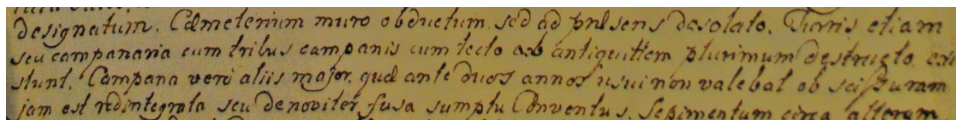 designatum. Cæmeterium muro obductum sed ad præsens desolato. Turris etiam
seu campanaria cum tribus campanis cum tecto ob antiquittem plurimum destructo
stunt. Campana vero aliis major, quæ ante duos annos usui non valebat ob scissuram
jam est redintegrata seu denoviter fusa sumptu Conventus. Sepimentum circa alteram